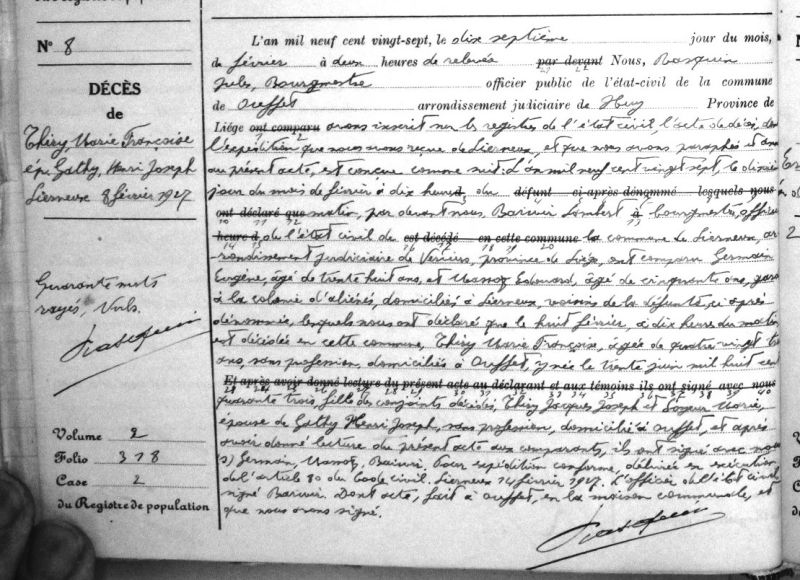 N° 8
DÉCÈS
de
Thiry, Marie Françoise
ép. Gathy, Henri Joseph
Lierneux 8 février 1927
Quarante mots
rayés, nuls.
Volume 2
Folio 318
Case 2
du Registre de population
L'an mil neuf cent vingt-sept, le dix septième jour du mois,
de février à deux heures de relevée par devant Nous, Rasquin
Jules, Bourgmestre officier public de l'état-civil de la commune
de Ouffet arrondissement judiciaire de Huy Province de
Liège ont comparu avons inscrit sur les registres de l'état civil, l'acte de décès, dont
l'expédition que nous avons reçue de Lierneux, et que nous avons paraphée et
au présent acte, est conçue comme suit. L'an mil neuf cent vingt sept, le dixième
jour du mois de février à dix heures du défunt ci-après dénommé lesquels nous
ont déclaré que matin, par devant nous Lambert à bourgmestre, officier
heure d de l'état civil de est décédé en cette commune la commune de Lierneux, ar
rondissement judiciaire de Verviers, province de Liège, ont comparu Germain
Eugène, âgé de trente huit ans, et Edouard, âgé de cinquante ans,
à la colonie d'aliénés, domiciliés à Lierneux, voisins de la défunte, ci après
dénommée, lesquels nous ont déclaré que le huit février, à dix heures du matin
est décédée en cette commune, Thiry Marie Françoise, âgée de quatre vingt trois
ans, sans profession, domiciliée à Ouffet, y née le trente juin mil huit cent
Et après avoir donné lecture du présent acte au déclarant et aux témoins ils ont signé avec nous
quarante trois, fille des conjoints décédés, Thiry Jacques Joseph et Marie,
épouse de Gathy Henri Joseph, sans profession, domicilié à Ouffet, et après
avoir donné lecture du présent acte aux comparants, ils ont signé avec nous
s) Germain, Pour expédition conforme, délivrée en exécution
de l'article 80 du Code civil. Lierneux 14 février 1927. L'officier de l'état civil
signé Dont acte, fait à Ouffet, en la maison communale, et
que nous avons signé.